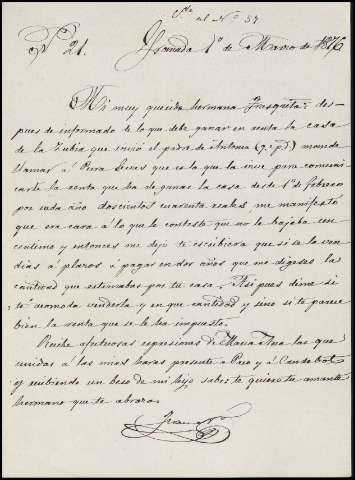 Vde. el Nº 37
Nº 21. Granada 1º de Marzo de 1876
Mi muy querida hermana Frasquita: des-
pues de informado de lo que debe ganar en renta la casa
de la Zubia que vivió el padre de Antonia (q. e. p. d.) mandé
llamar á Pura Cuevas que es la que la vive para comuni
carle la renta que ha de ganar la casa desde 1º de febrero
por cada año doscientos cuarenta reales, me manifestó
que era cara á lo que le contesté que no le bajaba con
centimo y entonces me dijo te escribiera que si se la ven
dias á plazos á pagar en dos años que me digeses la
cantidad que estimabas por tu casa. Asi pues dime si
te acomoda venderla y en que cantidad y sino si te parece
bien la renta que se le ha impuesto.
Recibe afectuosas expresiones de Maria Tera las que
unidas á las mias haras presente á Paco y á Candobot
y recibiendo un beso de mi hijo sabes te quiere tu amante
hermano que te abraza
Franco